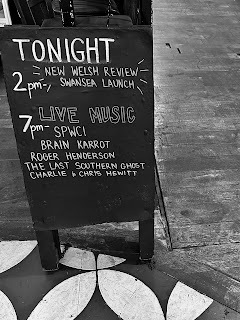 TONIGHT
2pm- NEW WELSH REVIEW
SWANSEA LAUNCH
7pm- LIVE MUSIC
SPWCI
BRAIN KARROT
ROGER HENDERSON
THE LAST SOUTHERN GHOST
CHARLIE & CHRIS HEWITT